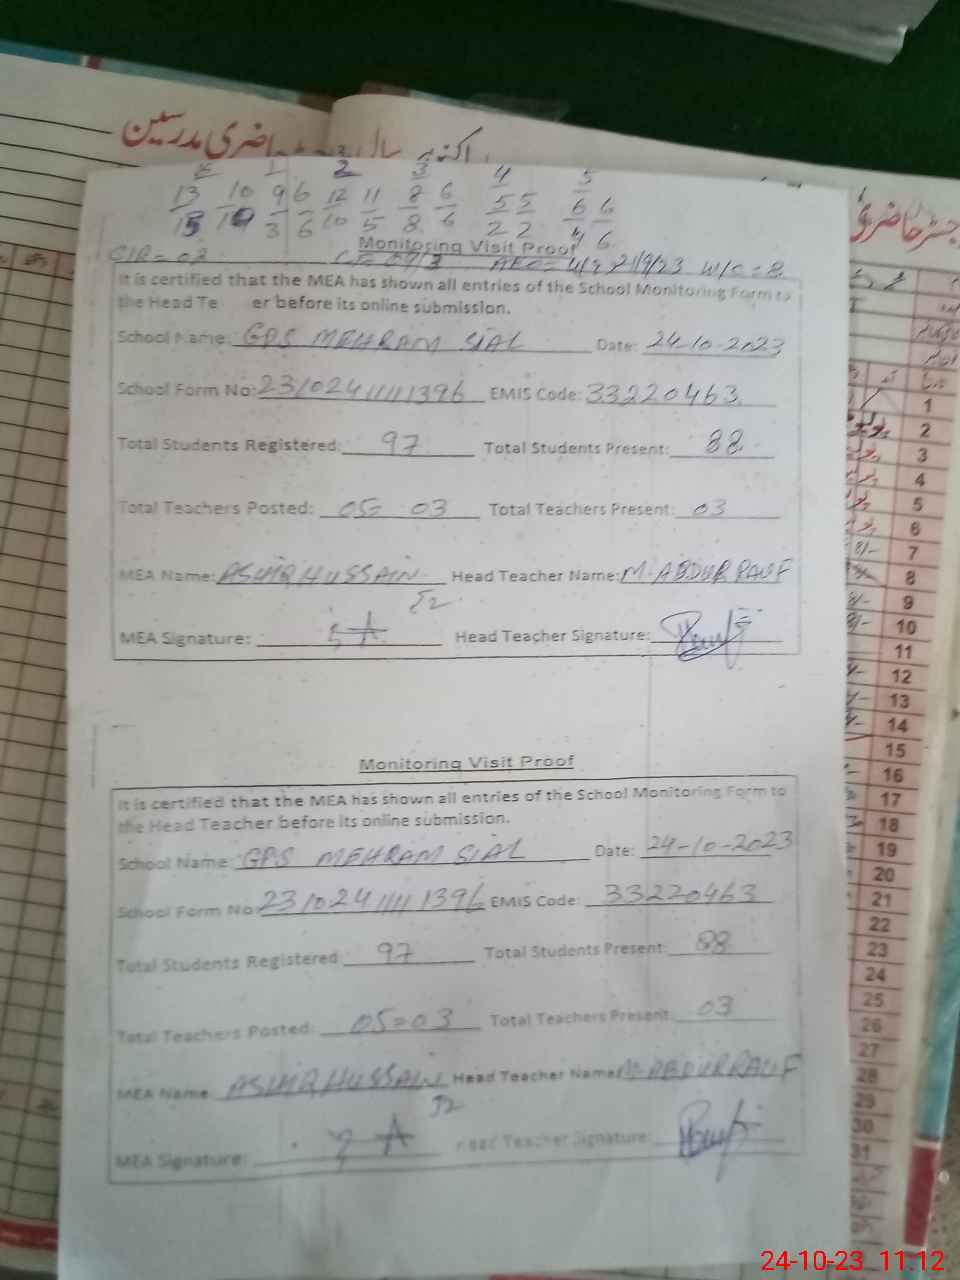 حاضری مدرسین
1 2 3 4 5
13 10 9 6 12 11 8 6 5 5 6 6
3 6 10 5 8 6 2 2 4 6
Monitoring Visit Proof
21/9/23 W/S = 8
It is certified that the MEA has shown all entries of the School Monitoring Form to
the Head Te er before its online submission.
School Name: GPS MEHRAM SIAL Date: 24-10-2023
School Form No: 23102411111396 EMIS Code: 33220463
Total Students Registered: 97 Total Students Present: 88
Total Teachers Posted: 05= 03 Total Teachers Present: 03
MEA Name: HUSSAIN Head Teacher Name: M. ABDUR RAUF
MEA Signature: Head Teacher Signature:
Monitoring Visit Proof
It is certified that the MEA has shown all entries of the School Monitoring Form to
the Head Teacher before its online submission.
School Name: GPS MEHRAM SIAL Date: 24-10-2023
School Form No: 23102411111396 EMIS Code: 33220463
Total Students Registered: 97 Total Students Present: 88
Total Teachers Posted: 05=03 Total Teachers Present: 03
MEA Name: HUSSAIN Head Teacher Name: M. ABDUR RAUF
MEA Signature: Head Teacher Signature:
1
2
3
4
5
6
7
8
9
10
11
12
13
14
15
16
17
18
19
20
21
22
23
24
25
26
27
28
29
30
31
24-10-23 11:12